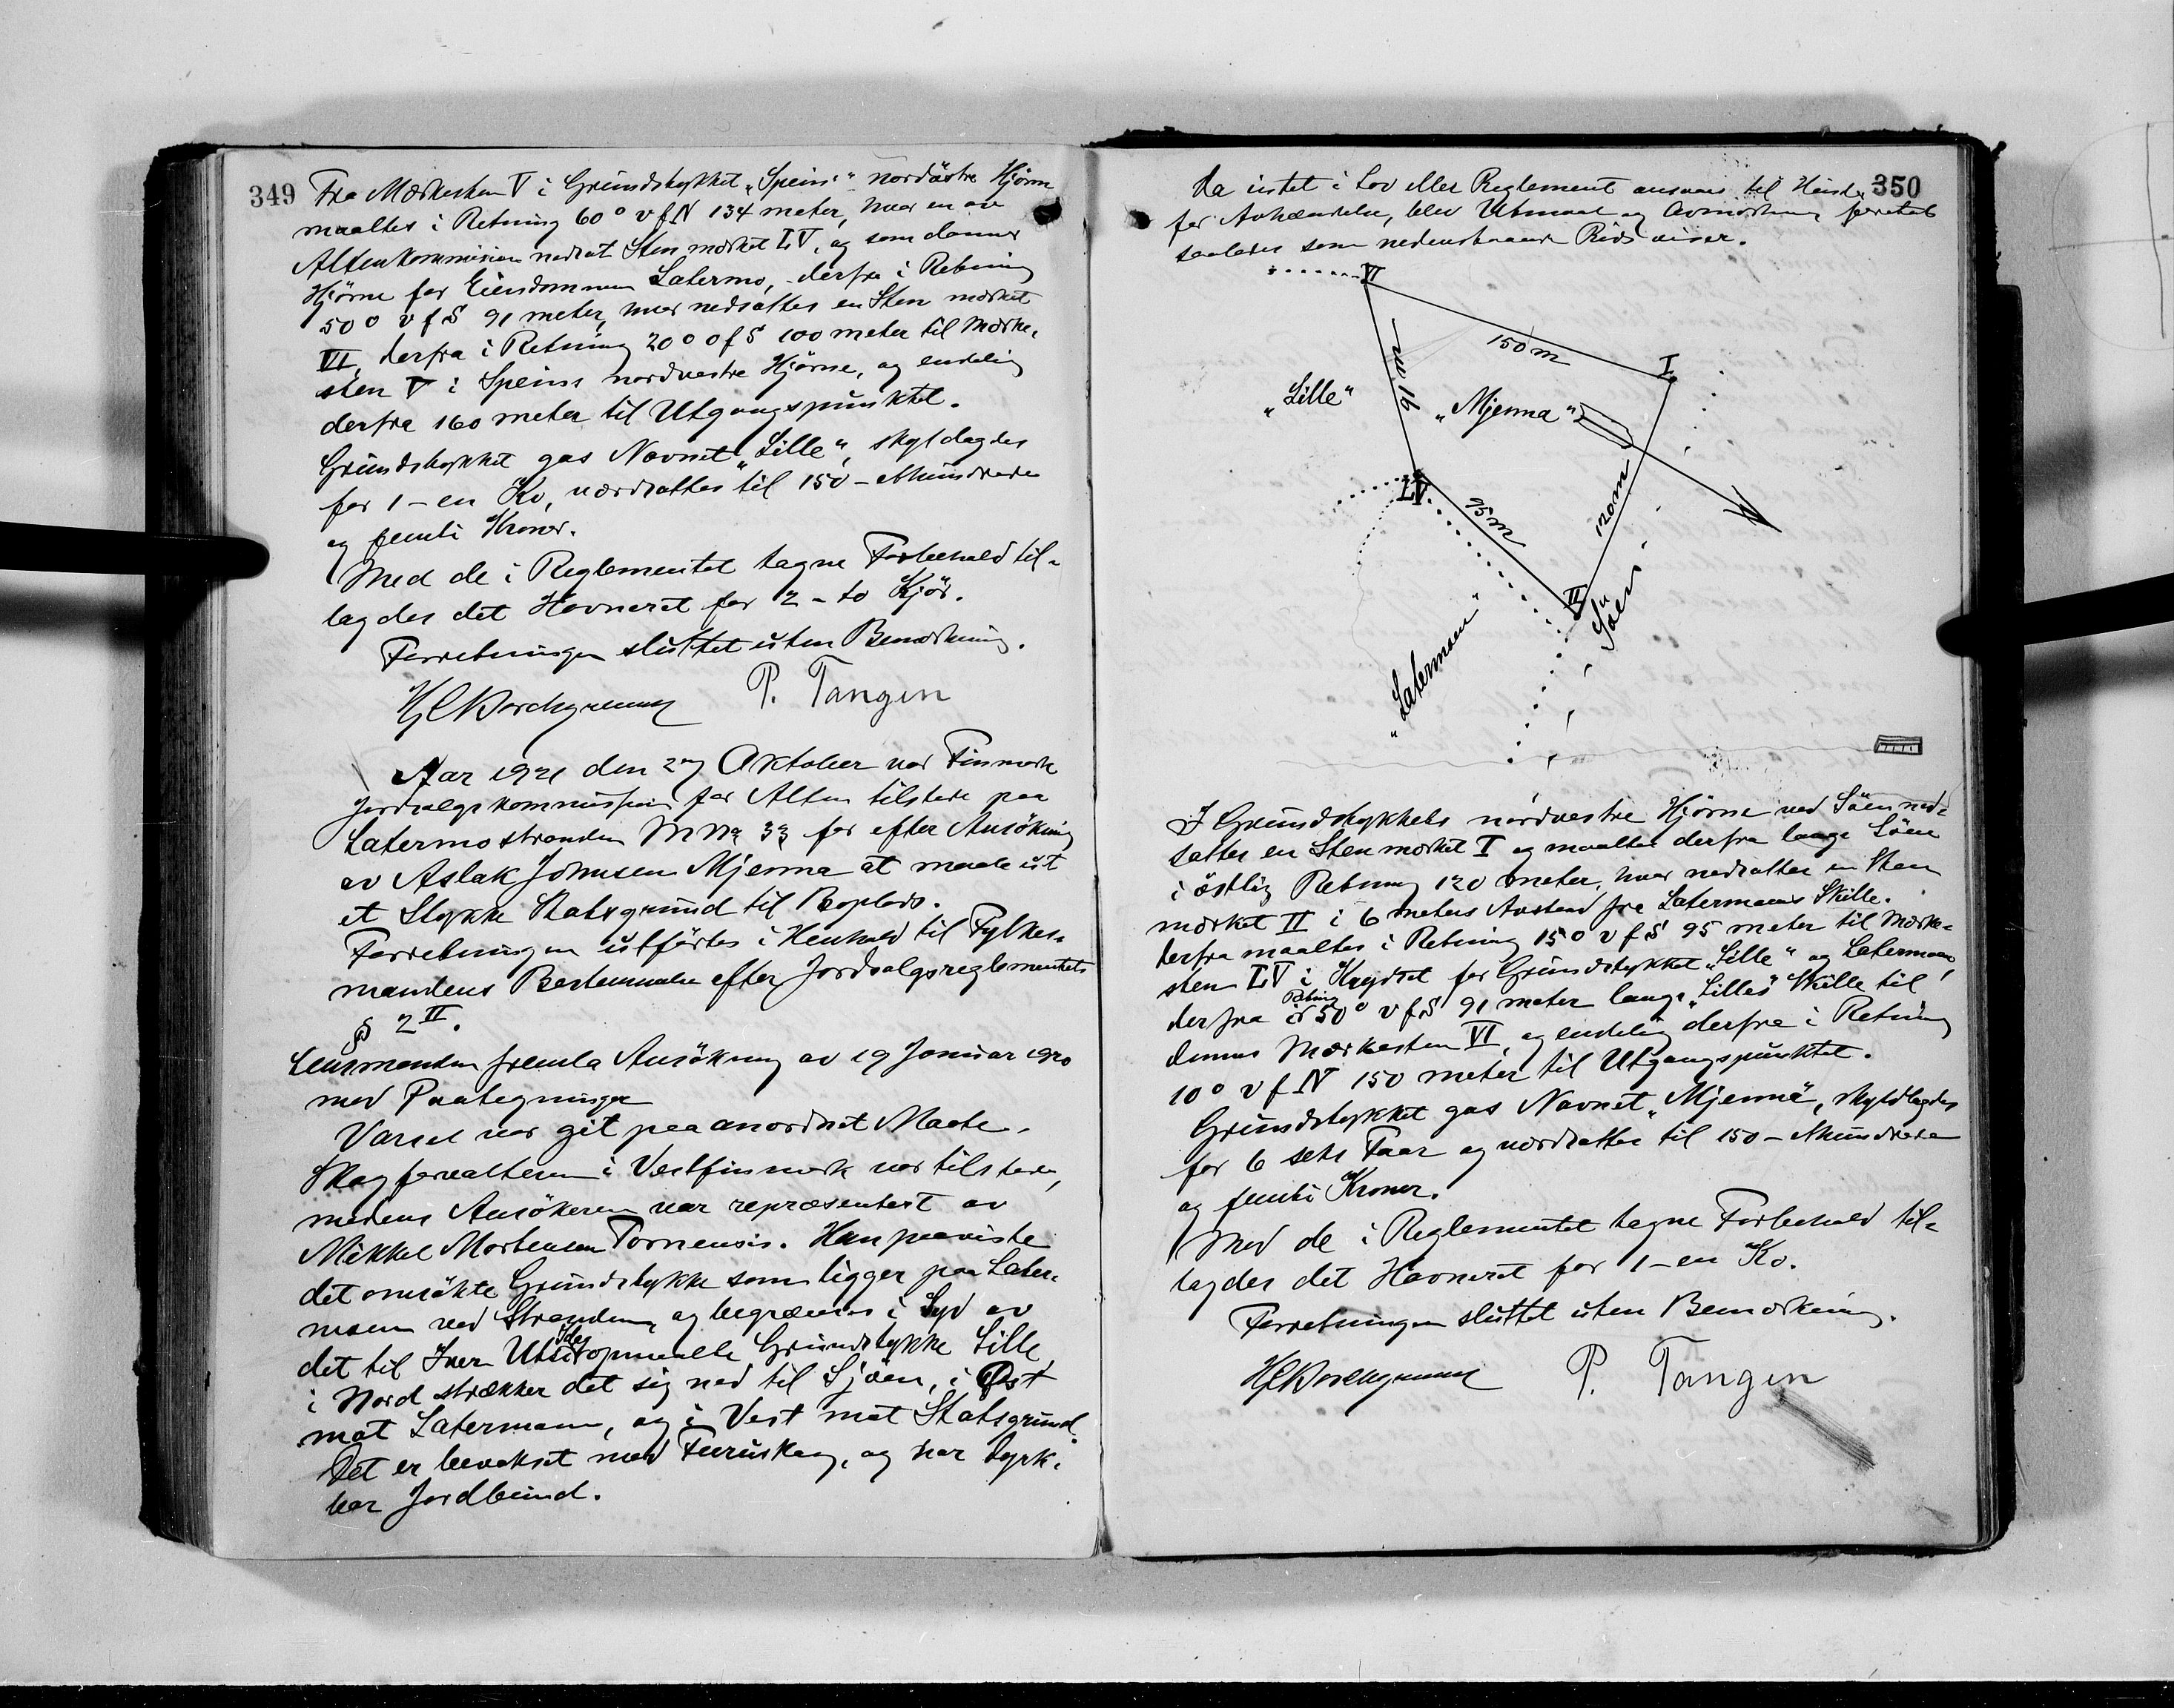 349
Fra Mærkesten V i Grundstykket „Speins" nordöstre Hjörne
maaltes i Retning 60° v f N 134 meter, hvor en av
Altenkommission nedsat Sten mærket LV, og som danner
Hjörne for Eiendommen Latermo, derfra i Retning
50° v f S 91 meter, hvor nedsattes en Sten mærket
VI, derfra i Retning 20° o f S 100 meter til Mærke-
sten V i Speins nordvestre Hjörne, og endelig
derfra 160 meter til Utgangspunktet.
Grundstykket gas Navnet „Lille", skyldlagdes
for 1 - en Ko, værdsattes til 150 - ethundrede
og femti Kroner.
Med de i Reglementet tagne Forbehold til-
lagdes det Havneret for 2 - to Kjör.
Forretningen sluttet uten Bemærkning.
P. Tangen
Aar 1921 den 27 Oktober var Finmark
Jordsalgskommission for Alten tilstede paa
Latermostranden M No 33 for efter Ansökning
av Aslak Johnsen Mjenna at maale ut
et Stykke Statsgrund til Boplads.
Forretningen utförtes i Henhold til Fylkes-
mandens Bestemmelse efter Jordsalgsreglementets
§ 2 II.
Lensmanden fremla Ansökning av 19 Januar 1920
med Paategninger
Varsel var git paa anordnet Maate.
Skogforvalteren i Vestfinmark var tilstede,
medens Ansökeren var repræsentert av
Mikkel Mortensen Tornensis. Han paaviste
det ansökte Grundstykke som ligger paa Later-
moen ved Stranden, og begrænses i Syd av
det til Iver Utsi idag opmaalte Grundstykke Lille
i Nord strækker det sig ned til Sjöen, i Öst
mot Latermoen, og i Vest mot Statsgrund.
Det er bevokset med Furuskog, og har dyrk-
bar Jordbund.
350
Da intet i Lov eller Reglement ansaaes til Hinder
for Avhændelse, blev Utmaal og Avmerkning foretat
saaledes som nedenstaaende Rids viser.
VI
150 m
I
91 m
„Lille"
„Mjenna"
N
LV
95 m
120 m
II
Söen
„Latermoen"
I Grundstykkets nordvestre Hjörne ved Söen ned-
sattes en Sten mærket I og maaltes derfra langs Söen
i östlig Retning 120 meter, hvor nedsattes en Sten
mærket II i 6 meters Avstand fra Latermoens Skille.
derfra maaltes i Retning 15° v f S 95 meter til Mærke-
sten LV i Krydset for Grundstykket „Lille" og Latermoen,
derfra i Retning 50° v f S 91 meter langs „Lilles" Skille til
dennes Mærkesten VI, og endelig derfra i Retning
10° v f N 150 meter til Utgangspunktet.
Grundstykket gas Navnet „Mjenna", skyldlagdes
for 6 seks Faar og værdsattes til 150 - ethundrede
og femti Kroner.
Med de i Reglementet tagne Forbehold til-
lagdes det Havneret for 1 - en Ko.
Forretningen sluttet uten Bemærkning.
P. Tangen